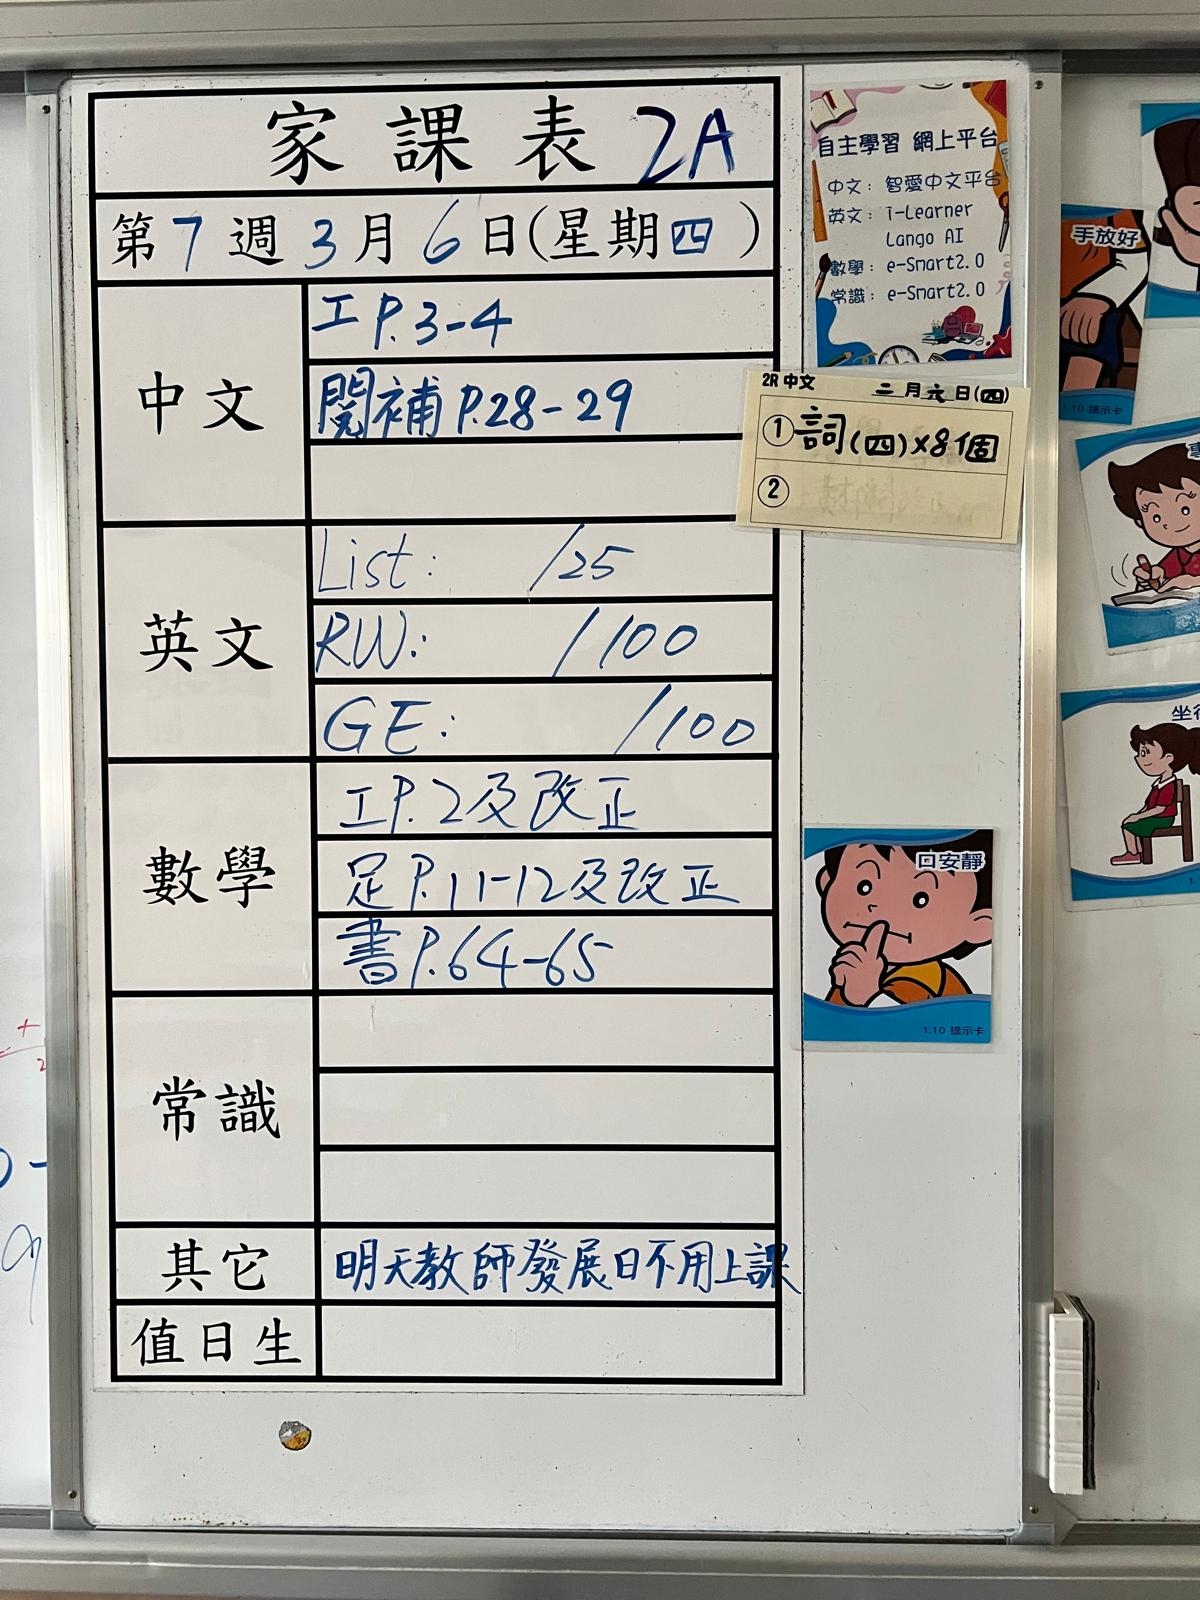 家課表 2A
第7週3月6日(星期四)
中文
工 P.3-4
閱補 P.28-29
英文
List: /25
RW: /100
GE: /100
數學
工P.2及改正
足P.11-12及改正
書P.64-65
常識
其它
明天教師發展日不用上課
值日生
自主學習 網上平台
中文：智愛中文平台
英文：i-Learner
Lango AI
數學：e-Smart2.0
常識：e-Smart2.0
2R 中文 三月六日(四)
① 詞(四)×8個
②
手放好
1.10 提示卡
坐
口安靜
1.10 提示卡